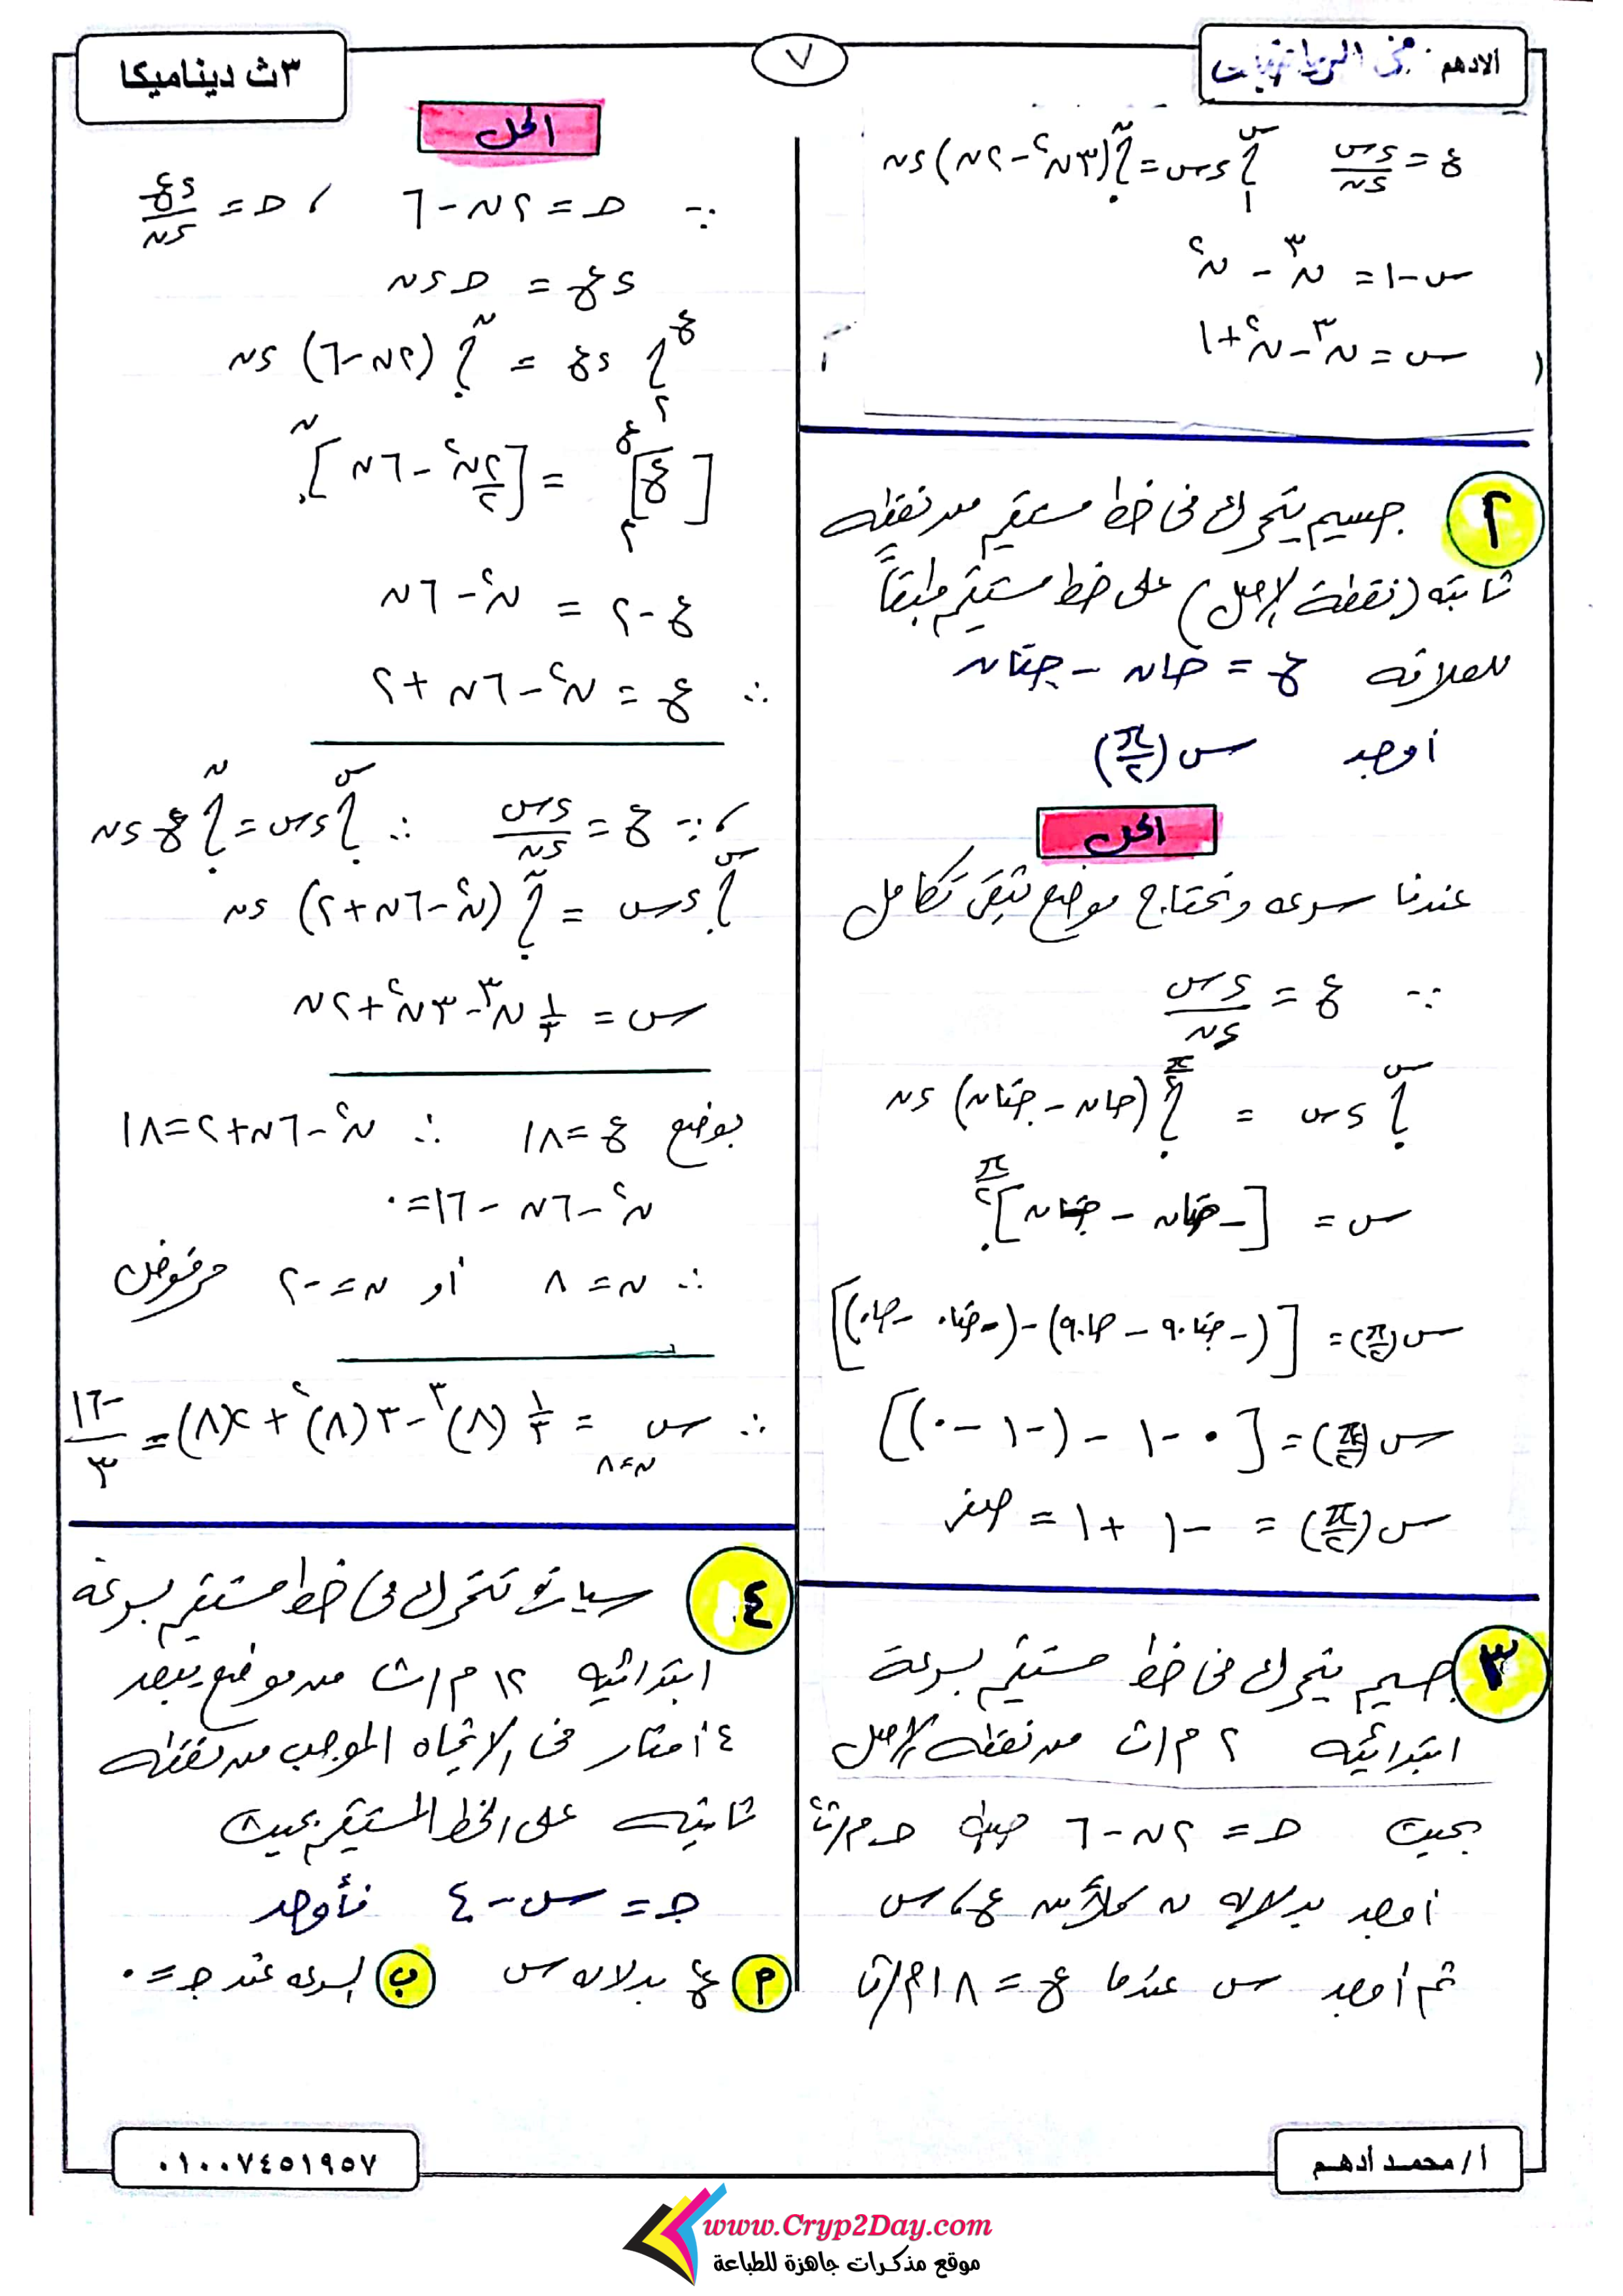 الادهم في الرياضيات
٧
٣ث ديناميكا
ع = ءس/ءن ∫₁^س ءس = ∫.^ن (٣ن² - ٢ن) ءن
س - ١ = ن³ - ن²
س = ن³ - ن² + ١
٢ جسيم يتحرك فى خط مستقيم من نقطه
ثابته (نقطة الاصل) على خط مستقيم طبقاً
للعلاقه ع = حان - جتان
أوجد س(π/٢)
الحل
عندنا سرعه ونحتاج موضع تبقى تكامل
∵ ع = ءس/ءن
∫.^س ءس = ∫.^(π/٢) (حان - جتان) ءن
س = [-جتان - حان].^(π/٢)
س(π/٢) = [(-جتا٩٠ - حا٩٠) - (-جتا٠ - حا٠)]
س(π/٢) = [٠ - ١ - (-١ - ٠)]
س(π/٢) = -١ + ١ = صفر
٣ جسيم يتحرك فى خط مستقيم بسرعة
ابتدائيه ٢ م/ث من نقطه الاصل
بحيث حـ = ٢ن - ٦ حيث حـ م/ث²
أوجد بدلاله ن كلاً من ع، س
ثم أوجد س عندما ع = ١٨ م/ث
الحل
∵ حـ = ٢ن - ٦ ، حـ = ءع/ءن
ءع = حـ ءن
∫₂^ع ءع = ∫.^ن (٢ن - ٦) ءن
[ع]₂^ع = [٢ن²/٢ - ٦ن].^ن
ع - ٢ = ن² - ٦ن
∴ ع = ن² - ٦ن + ٢
، ∵ ع = ءس/ءن ∴ ∫.^س ءس = ∫.^ن ع ءن
∫.^س ءس = ∫.^ن (ن² - ٦ن + ٢) ءن
س = ١/٣ ن³ - ٣ن² + ٢ن
بوضع ع = ١٨ ∴ ن² - ٦ن + ٢ = ١٨
ن² - ٦ن - ١٦ = ٠
∴ ن = ٨ أو ن = -٢ مرفوض
∴ س ن=٨ = ١/٣ (٨)³ - ٣(٨)² + ٢(٨) = -١٦/٣
٤ سيارة تتحرك فى خط مستقيم بسرعة
ابتدائيه ١٢ م/ث من موضع يبعد
٤ أمتار فى الاتجاه الموجب من نقطه
ثابته على الخط المستقيم بحيث
جـ = س - ٤ فأوجد
أ ع بدلاله س ب السرعه عند جـ = ٠
أ/ محمد أدهم
٠١٠٠٧٤٥١٩٥٧
www.Cryp2Day.com
موقع مذكرات جاهزة للطباعة